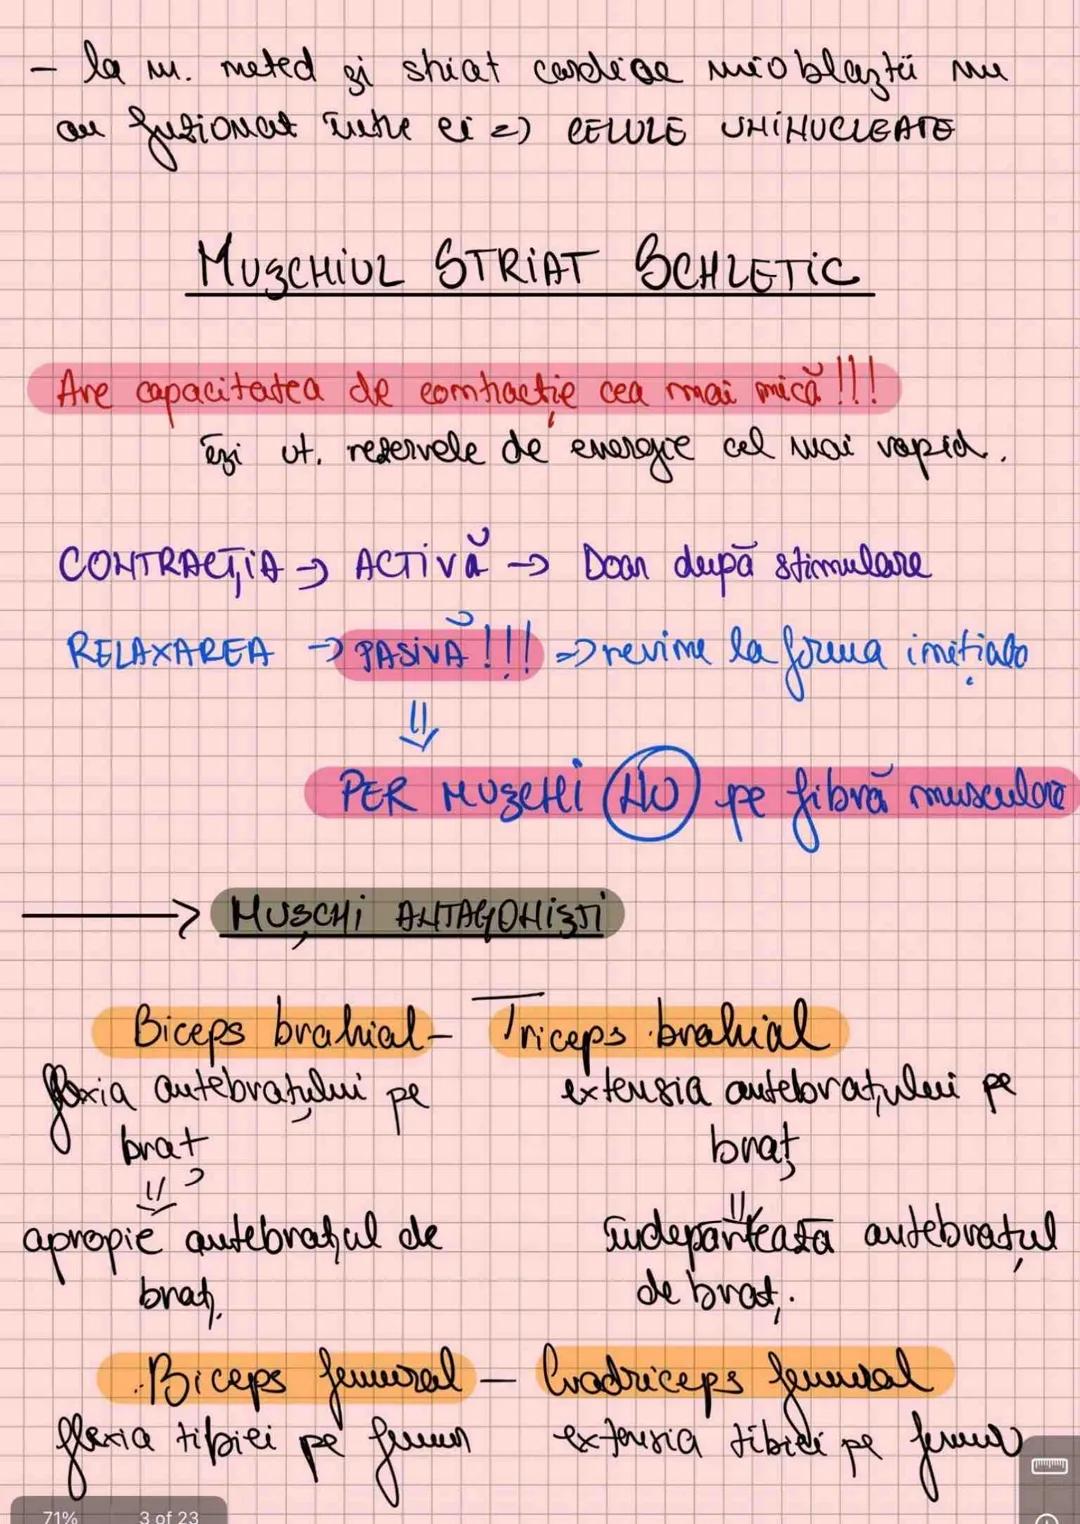 - la m. neted și striat cardiac mioblaștii nu
au fuzionat între ei => CELULE UNINUCLEATE
MUȘCHIUL STRIAT SCHLETIC
Are capacitatea de contracție cea mai mică!!!
își ut. rezervele de energie cel mai rapid.
CONTRACȚIA → ACTIVĂ → Doar după stimulare
RELAXAREA → PASIVĂ!!! => revine la forma inițială
⇓
PER MUȘCHI NU pe fibră musculară
→ MUȘCHI ANTAGONIȘTI
Biceps brahial - Triceps brahial
flexia antebrațului pe extensia antebrațului pe
braț braț
⇓ ⇓
apropie antebrațul de îndepărtează antebrațul
braț. de braț.
Biceps femural - Cvadriceps femural
flexia tibiei pe femur extensia tibiei pe femur
71% 3 of 23